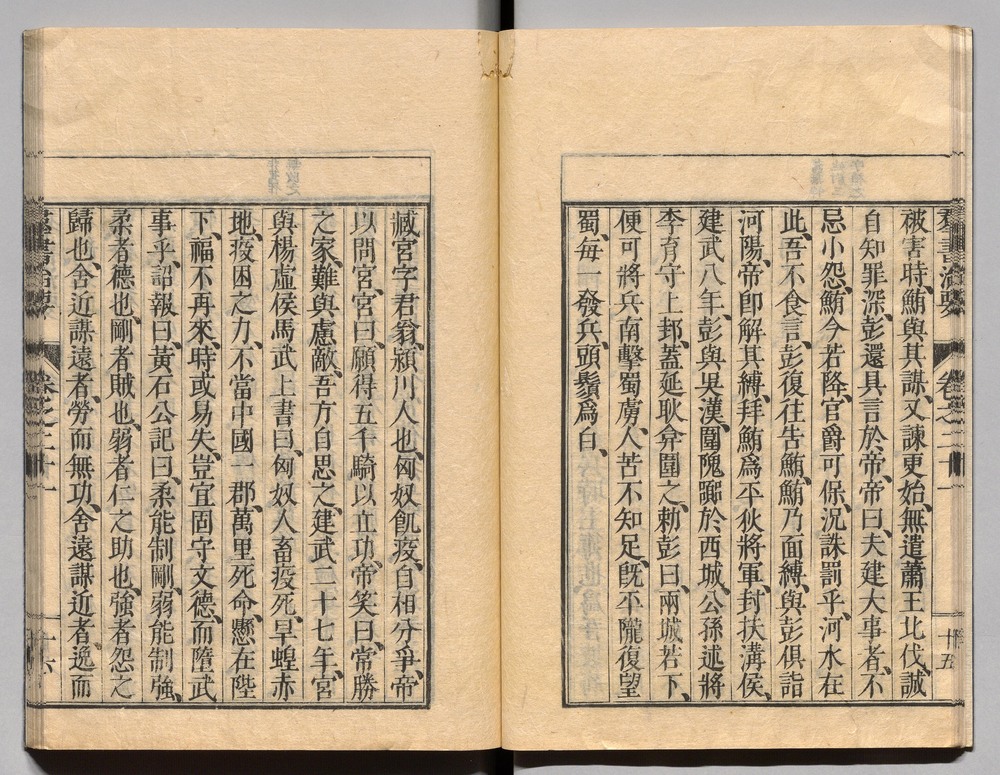 群書治要 卷之二十一 十五
被害時、鮪與其謀、又諫更始、無遣蕭王北伐、誠
自知罪深、彭還具言於帝、帝曰、夫建大事者、不
忌小怨、鮪今若降、官爵可保、況誅罰乎、河水在
此、吾不食言、彭復往告鮪、鮪乃面縛、與彭俱詣
河陽、帝卽解其縛、拜鮪爲平狄將軍、封扶溝侯、
建武八年、彭與吳漢、圍隗囂於西城、公孫述將
李育守上邽、蓋延耿弇圍之、勅彭曰、兩城若下、
便可將兵南擊蜀虜、人苦不知足、旣平隴復望
蜀、每一發兵、頭鬚爲白、
臧宮字君翁、潁川人也、匈奴飢疫、自相分爭、帝
以問宮、宮曰、願得五千騎以立功、帝笑曰、常勝
之家、難與慮敵、吾方自思之、建武二十七年、宮
與楊虛侯馬武上書曰、匈奴人畜疫死、旱蝗赤
地、疫困之力、不當中國一郡、萬里死命、懸在陛
下、福不再來、時或易失、豈宜固守文德、而墮武
事乎、詔報曰、黃石公記曰、柔能制剛、弱能制強、
柔者德也、剛者賊也、弱者仁之助也、強者怨之
歸也、舍近謀遠者、勞而無功、舍遠謀近者、逸而
群書治要 卷之二十一 十六